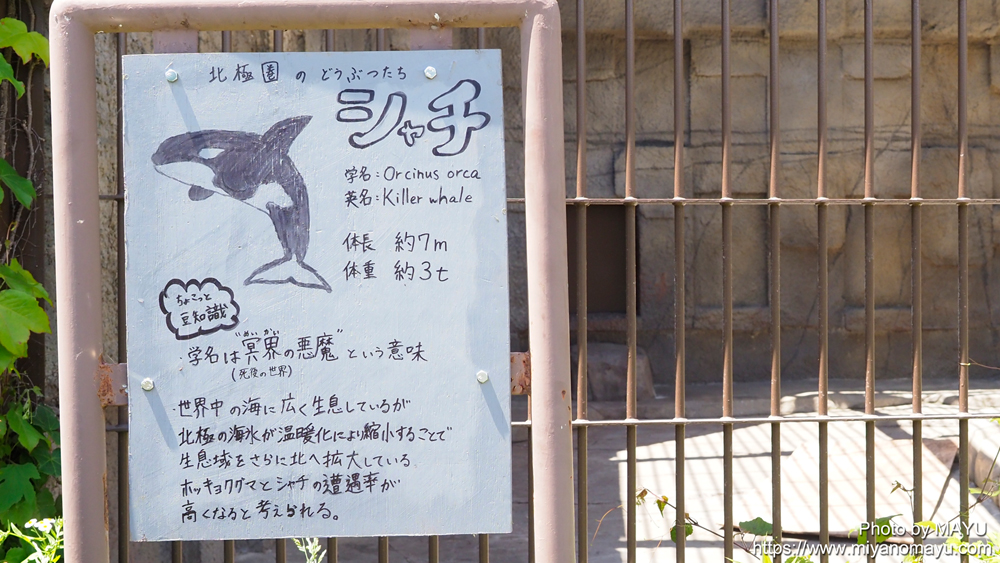 北極圏のどうぶつたち
シャチ
学名:Orcinus orca
英名:Killer whale
体長 約7m
体重 約3t
ちょこっと
豆知識
めいかい
・学名は"冥界の悪魔"という意味
(死後の世界)
・世界中の海に広く生息しているが
北極の海氷が温暖化により縮小することで
生息域をさらに北へ拡大している
ホッキョクグマとシャチの遭遇率が
高くなると考えられる。
Photo by MAYU
https://www.miyanomayu.com/